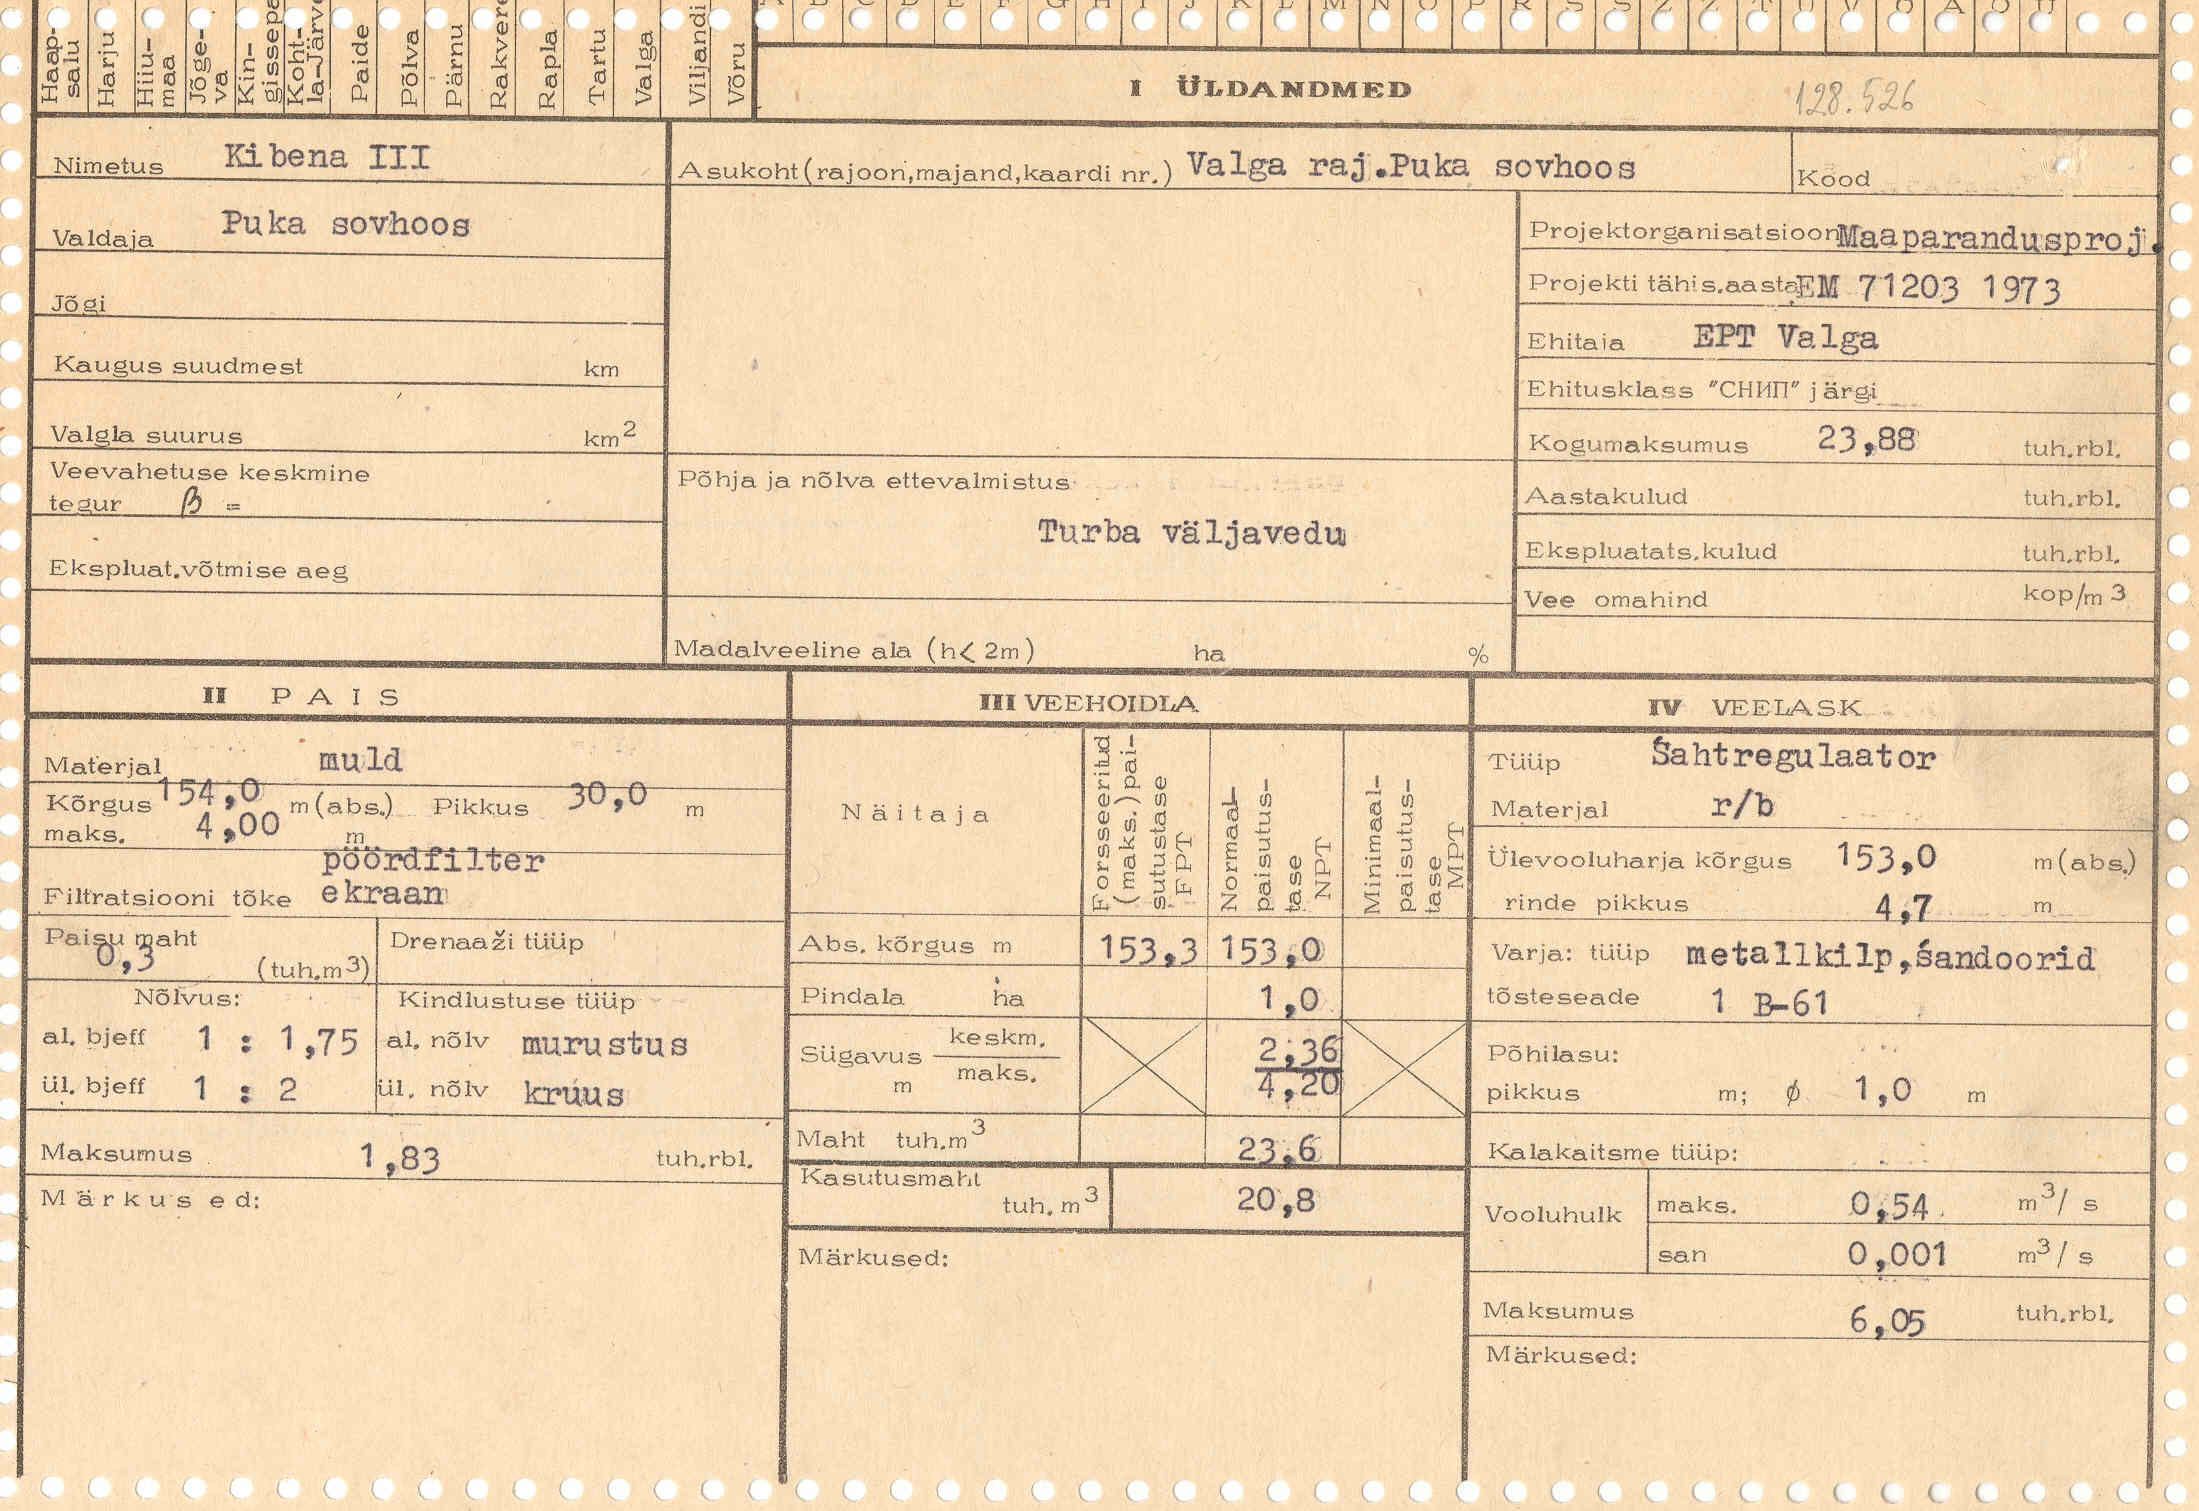 Haap-
salu
Harju
Hiiu-
maa
Jõge-
va
Kin-
gissepa
Koht-
la-Järve
Paide
Põlva
Pärnu
Rakvere
Rapla
Tartu
Valga
Viljandi
Võru
I ÜLDANDMED
128.526
Nimetus Kibena III
Asukoht (rajoon,majand,kaardi nr.) Valga raj.Puka sovhoos
Kood
Valdaja Puka sovhoos
Jõgi
Kaugus suudmest km
Valgla suurus km2
Veevahetuse keskmine
tegur β =
Ekspluat.võtmise aeg
Põhja ja nõlva ettevalmistus
Turba väljavedu
Madalveeline ala (h< 2m) ha %
Projektorganisatsioon Maaparandusproj.
Projekti tähis.aasta EM 71203 1973
Ehitaja EPT Valga
Ehitusklass "СНИП" järgi
Kogumaksumus 23,88 tuh.rbl.
Aastakulud tuh.rbl.
Ekspluatats.kulud tuh.rbl.
Vee omahind kop/m3
II PAIS
Materjal muld
Kõrgus 154,0 m(abs.) Pikkus 30,0 m
maks. 4,00 m
Filtratsiooni tõke pöördfilter
ekraan
Paisu maht
0,3 (tuh.m3)
Drenaaži tüüp
Nõlvus:
Kindlustuse tüüp
al. bjeff 1 : 1,75
al. nõlv murustus
ül. bjeff 1 : 2
ül. nõlv kruus
Maksumus 1,83 tuh.rbl.
Märkused:
III VEEHOIDLA
Näitaja
Forsseeritud
(maks.) pai-
sutustase
FPT
Normaal-
paisutus-
tase
NPT
Minimaal-
paisutus-
tase
MPT
Abs. kõrgus m 153,3 153,0
Pindala ha 1,0
Sügavus keskm. 2,36
m maks. 4,20
Maht tuh.m3 23,6
Kasutusmaht
tuh.m3 20,8
Märkused:
IV VEELASK
Tüüp Šahtregulaator
Materjal r/b
Ülevooluharja kõrgus 153,0 m(abs.)
rinde pikkus 4,7 m
Varja: tüüp metallkilp,šandoorid
tõsteseade 1 B-61
Põhilasu:
pikkus m; ø 1,0 m
Kalakaitsme tüüp:
Vooluhulk
maks. 0,54 m3/ s
san 0,001 m3/ s
Maksumus 6,05 tuh.rbl.
Märkused: